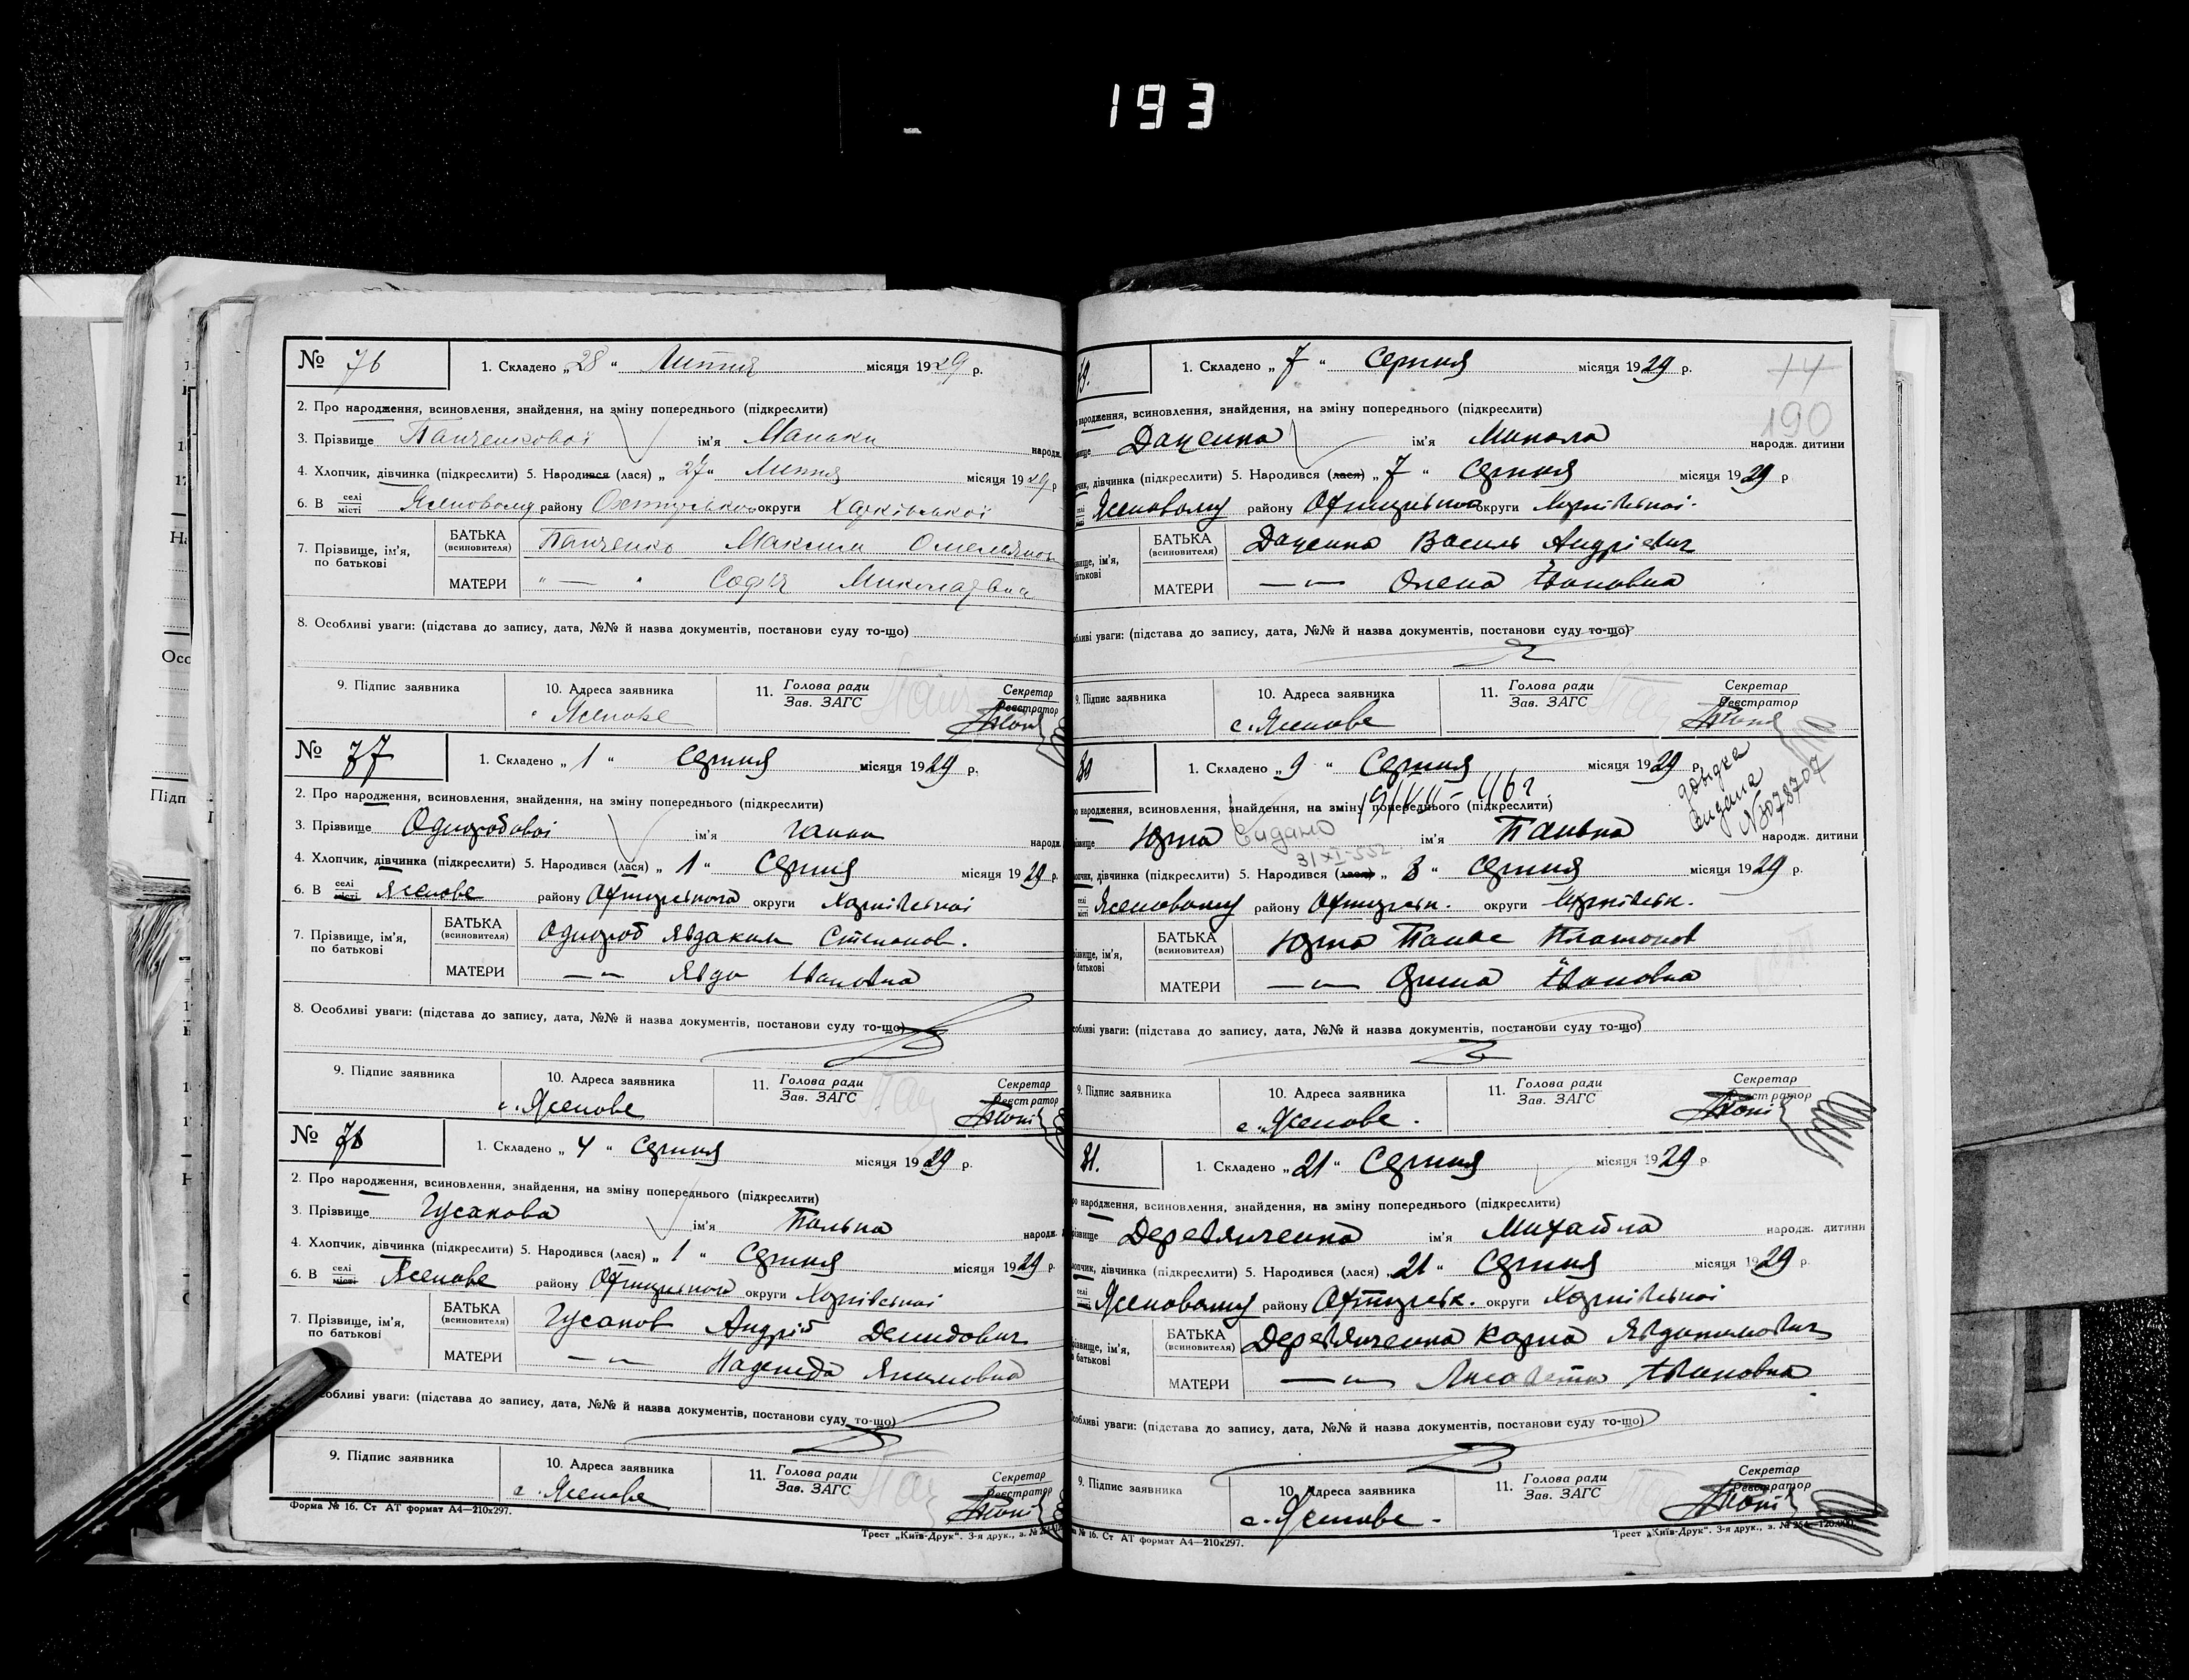 193
№ 76
1. Складено „28“ Липня місяця 1929 р.
2. Про народження, всиновлення, знайдення, на зміну попереднього (підкреслити)
3. Прізвище Панченкової ім'я Маньки народж.
4. Хлопчик, дівчинка (підкреслити) 5. Народився (лася) „27“ Липня місяця 1929 р
6. В селі/місті Ясеновому району Охтирського округи Харківської
7. Прізвище, ім'я, по батькові
БАТЬКА (всиновителя) Панченко Максим Омельянов
МАТЕРИ „ — “ Софія Миколаївна
8. Особливі уваги: (підстава до запису, дата, №№ й назва документів, постанови суду то-що)
9. Підпис заявника 10. Адреса заявника 11. Голова ради / Зав. ЗАГС Секретар / Реєстратор
Ясенове
№ 77
1. Складено „1“ Серпня місяця 1929 р.
2. Про народження, всиновлення, знайдення, на зміну попереднього (підкреслити)
3. Прізвище Однороbової ім'я Ганни народж.
4. Хлопчик, дівчинка (підкреслити) 5. Народився (лася) „1“ Серпня місяця 1929 р.
6. В селі/місті Ясенове району Охтирського округи Харківської
7. Прізвище, ім'я, по батькові
БАТЬКА (всиновителя) Однороб Явдаким Степанов.
МАТЕРИ — „ — Явдо Івановна
8. Особливі уваги: (підстава до запису, дата, №№ й назва документів, постанови суду то-що)
9. Підпис заявника 10. Адреса заявника 11. Голова ради / Зав. ЗАГС Секретар / Реєстратор
с. Ясенове
№ 78
1. Складено „4“ Серпня місяця 1929 р.
2. Про народження, всиновлення, знайдення, на зміну попереднього (підкреслити)
3. Прізвище Гусакова ім'я Полька народж.
4. Хлопчик, дівчинка (підкреслити) 5. Народився (лася) „1“ Серпня місяця 1929 р.
6. В селі/місті Ясенове району Охтирського округи Харківської
7. Прізвище, ім'я, по батькові
БАТЬКА (всиновителя) Гусаков Андрій Демидович
МАТЕРИ — „ — Надежда Якимовна
особливі уваги: (підстава до запису, дата, №№ й назва документів, постанови суду то-що)
9. Підпис заявника 10. Адреса заявника 11. Голова ради / Зав. ЗАГС Секретар / Реєстратор
с. Ясенове
Форма № 16. Ст АТ формат А4—210х297.
Трест „Київ-Друк“. 3-я друк., з. №
79.
1. Складено „7“ Серпня місяця 1929 р.
14
190
народження, всиновлення, знайдення, на зміну попереднього (підкреслити)
Даценка ім'я Микола народж. дитини
дівчинка (підкреслити) 5. Народився (лася) „7“ Серпня місяця 1929 р
Ясеновому району Охтирського округи Харківської.
БАТЬКА (всиновителя) Даценка Василь Андрієвич
МАТЕРИ — „ — Олена Івановна
уваги: (підстава до запису, дата, №№ й назва документів, постанови суду то-що)
9. Підпис заявника 10. Адреса заявника 11. Голова ради / Зав. ЗАГС Секретар / Реєстратор
с. Ясенове
80
1. Складено „9“ Серпня місяця 1929 р.
довідка видана №078707
народження, всиновлення, знайдення, на зміну попереднього (підкреслити)
Юрка Видано ім'я Панька народж. дитини
31 XI-552
дівчинка (підкреслити) 5. Народився (лася) „8“ Серпня місяця 1929 р.
Ясеновому району Охтирськ. округи Харківськ.
БАТЬКА (всиновителя) Юрка Панас Платонов
МАТЕРИ — „ — Орина Івановна
уваги: (підстава до запису, дата, №№ й назва документів, постанови суду то-що)
9. Підпис заявника 10. Адреса заявника 11. Голова ради / Зав. ЗАГС Секретар / Реєстратор
с. Ясенове.
81.
1. Складено „21“ Серпня місяця 1929 р.
народження, всиновлення, знайдення, на зміну попереднього (підкреслити)
Деревянченка ім'я Михайла народж. дитини
дівчинка (підкреслити) 5. Народився (лася) „21“ Серпня місяця 1929 р.
Ясеновому району Охтирськ. округи Харківської
БАТЬКА (всиновителя) Деревянченка Карпа Явдокимович
МАТЕРИ — „ — Лисавета Івановна
уваги: (підстава до запису, дата, №№ й назва документів, постанови суду то-що)
9. Підпис заявника 10. Адреса заявника 11. Голова ради / Зав. ЗАГС Секретар / Реєстратор
с. Ясенове.
№ 16. Ст АТ формат А4—210х297.
Трест „Київ-Друк“. 3-я друк., з. № 254—120.000.